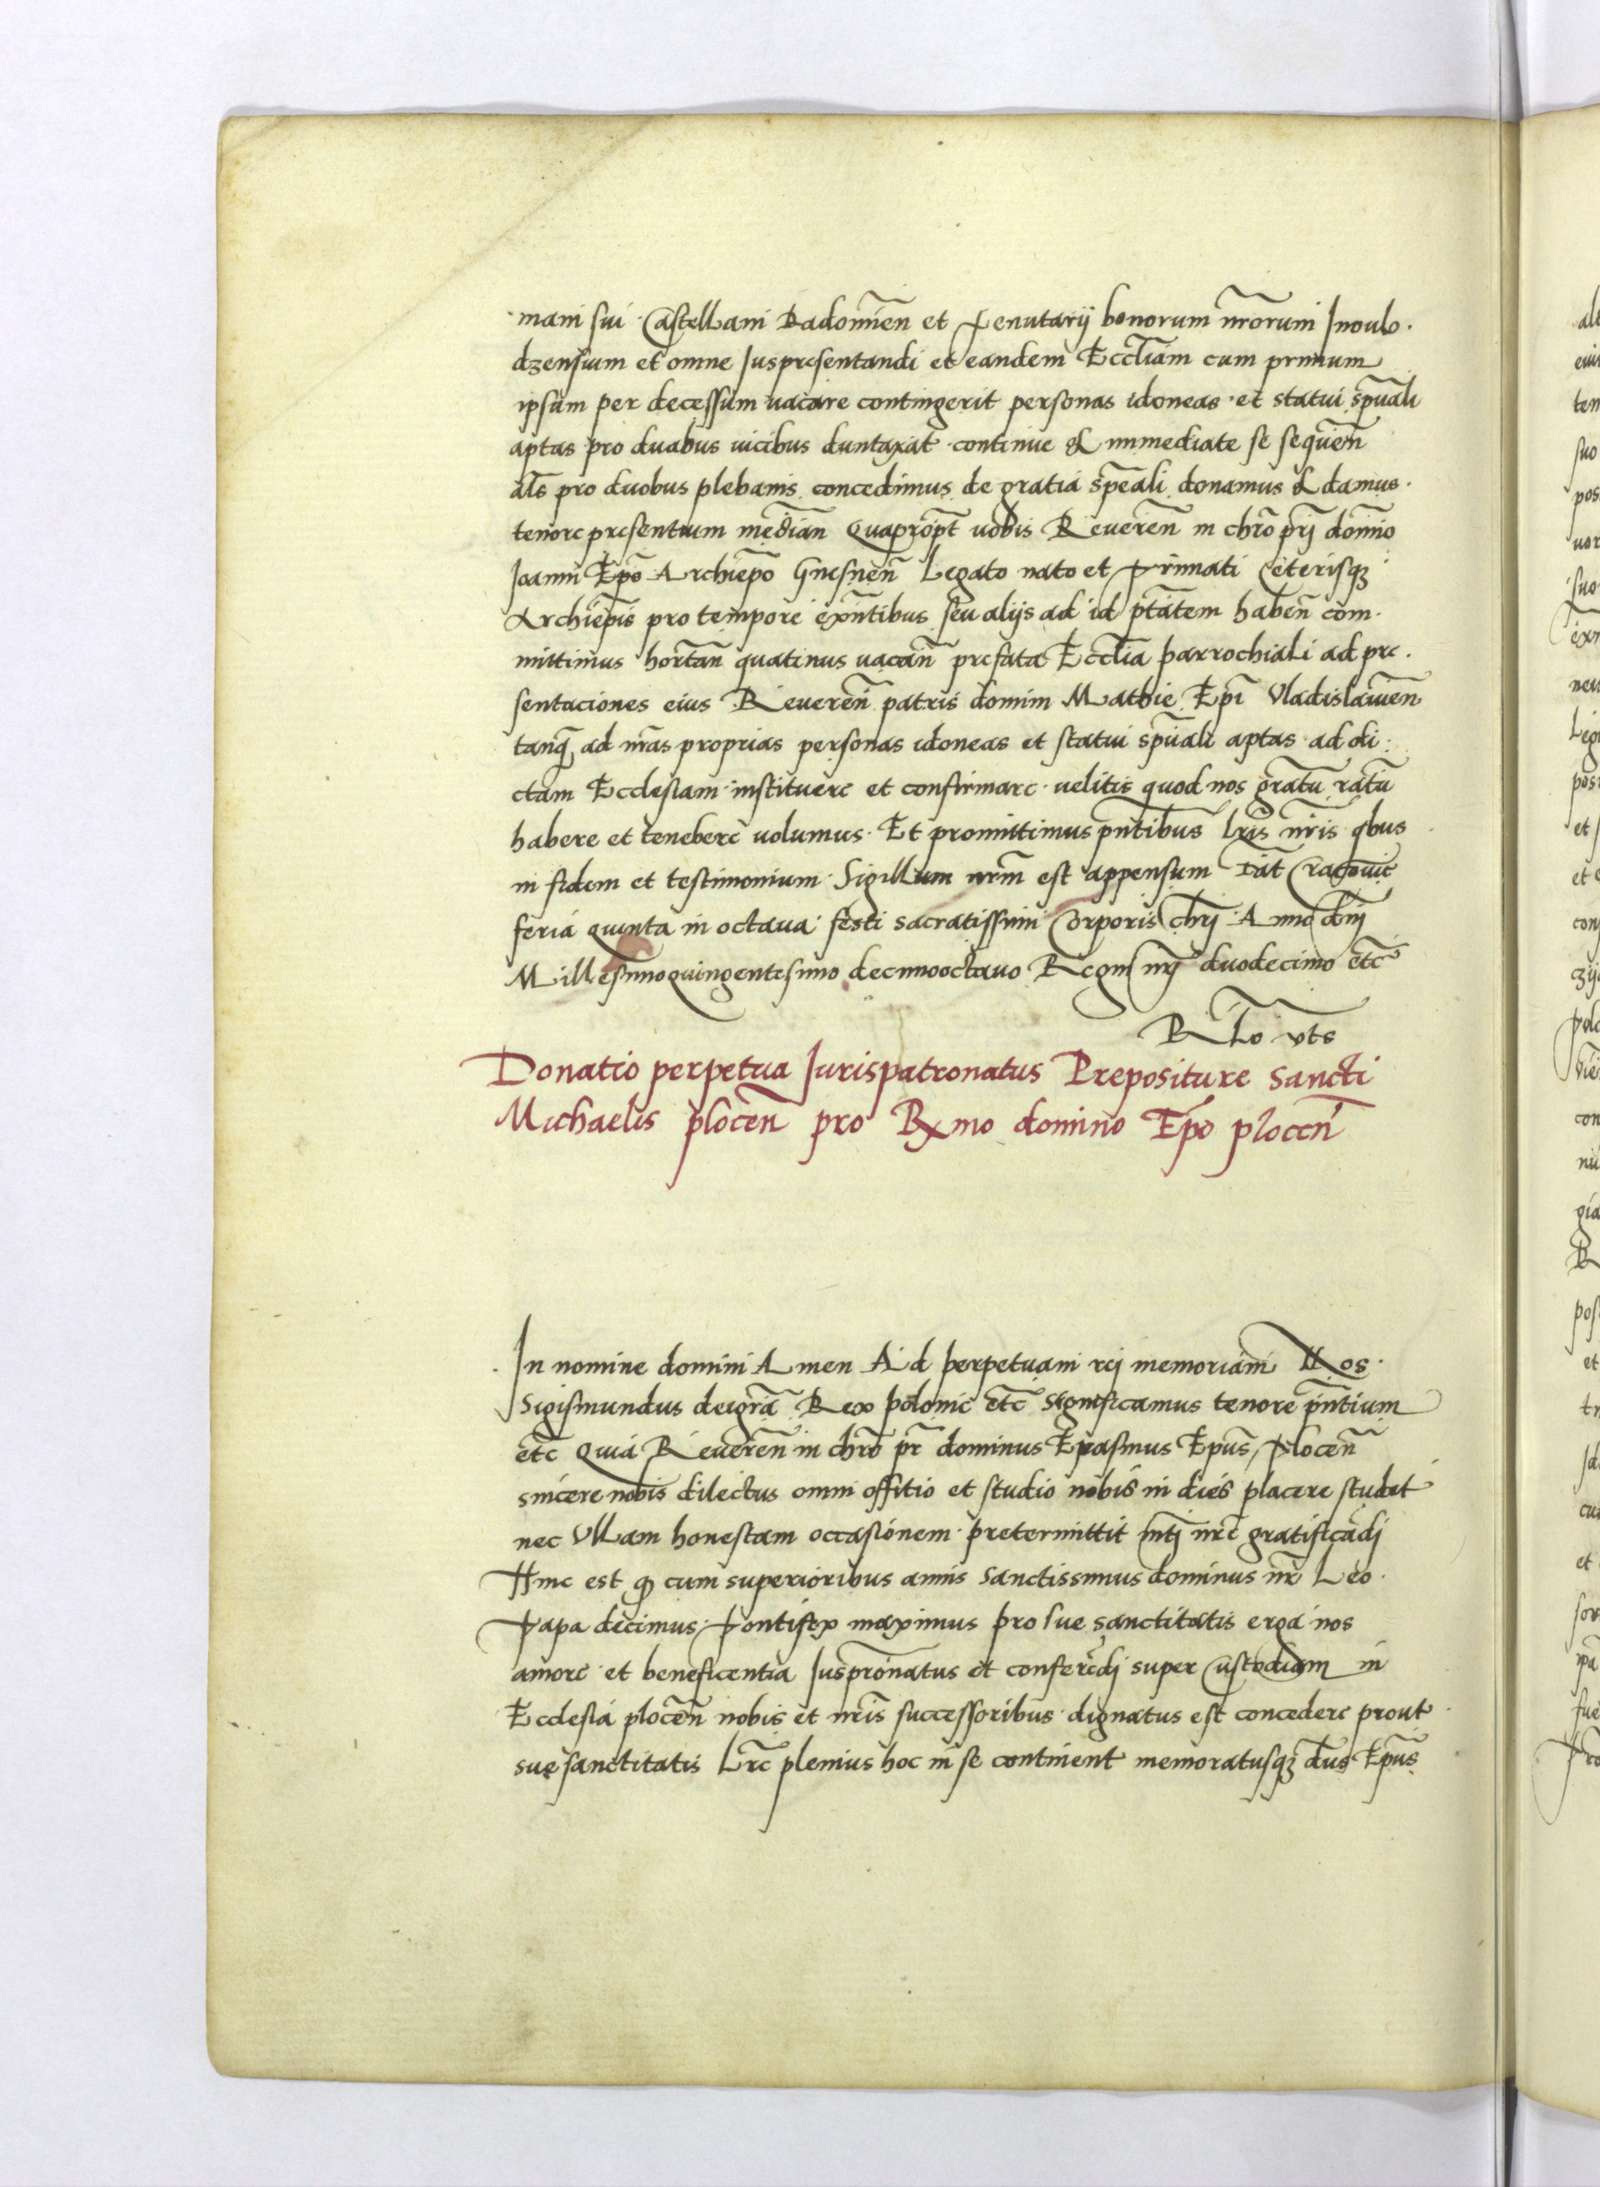 mani sui Castellani Radomien̄ et Tenutarij bonorum nr̄orum Inoulo
dzensium et omne Iuspresentandi et eandem Eccl̄iam cum primum
ipsam per decessum uacare contingerit personas idoneas et statui sp̄uali
aptas pro duabus uicibus duntaxat continue & immediate se sequen̄
al̄s pro duobus plebanis concedimus de gratia sp̄eali donamus & damus
tenore presentium median̄ Quapropt̄ uobis Reueren̄ in chr̄o pr̄i domino
Ioanni Ep̄o Archiep̄o Gnesnen̄ Legato nato et Primati Ceterisqꝫ
Archiep̄is pro tempore exn̄tibus seu alijs ad id ptātem haben̄ com
mittimus hortan̄ quatinus uacan̄ prefata Eccl̄ia parrochiali ad pre
sentaciones eius Reueren̄ patris domini Mathie Ep̄i Vladislauien̄
tanqꝫ ad nr̄as proprias personas idoneas et statui sp̄uali aptas ad di
ctam Ecclesiam instituere et confirmare uelitis quod nos gratū ratū
habere et tenebere uolumus Et promittimus pn̄tibus Lr̄is nr̄is qbus
in fidem et testimonium Sigillum nrm̄ est appensum Dat̄ Cracouie
feria quinta in octaua festi sacratissimi Corporis chri Anno dn̄i
Millesimoquingentesimo decimooctauo Regni nr̄i duodecimo etc̄
Rl̄o vts
Donatio perpetua Iurispatronatus Prepositure sancti
Michaelis plocen̄ pro Rx̄mo domino Ep̄o plocen̄
In nomine domini Amen Ad perpetuam rei memoriam Nos
Sigismundus deigr̄a Rex polonie etc̄ significamus tenore pn̄tium
etc̄ Quia Reueren̄ in chr̄o pr̄ dominus Erasmus Ep̄us Plocen̄
sincere nobis dilectus omni offitio et studio nobis in dies placere studet
nec Vllam honestam occasionem pretermittit mt̄i nr̄e gratificādi
Hinc est qꝫ cum superioribus annis sanctissimus dominus nr̄ Leo
Papa decimus Pontifex maximus pro sue sanctitatis erga nos
amore et beneficentia Iuspronatus et conferēdi super Custodiam in
Ecclesia plocen̄ nobis et nr̄is successoribus dignatus est concedere prout
sue sanctitatis Lr̄e plenius hoc in se continent memoratusqꝫ dn̄s Ep̄us